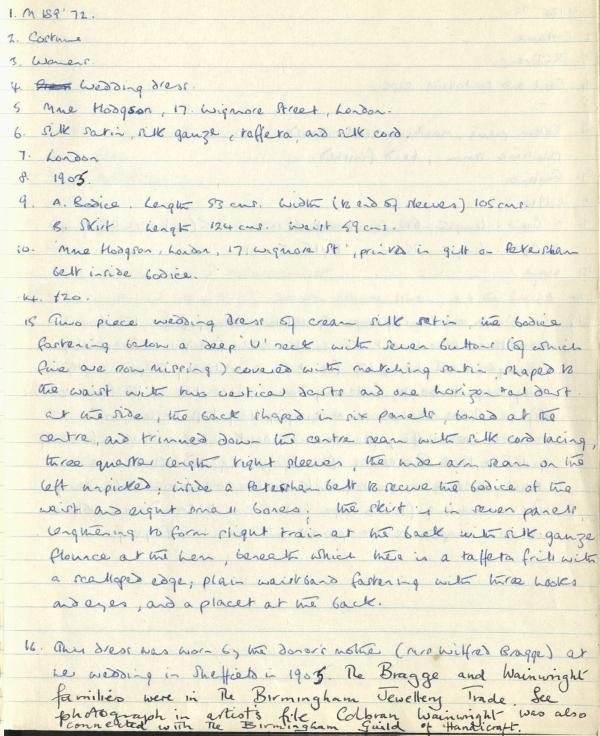 1. M 189 '72.
2. Costume
3. Womens
4. Wedding dress.
5 Mme Hodgson, 17. Wigmore Street, London.
6. Silk satin, silk gauze, taffeta, and silk cord.
7. London
8. 1905.
9. A. Bodice. Length 53 cms. Width (to end of sleeves) 105 cms.
B. Skirt Length 124 cms. Waist 59 cms.
10. 'Mme Hodgson, London, 17, Wigmore St', printed in gilt on Petersham
belt inside bodice.
14. £20.
15 Two piece wedding dress of cream silk satin, the bodice
fastening below a deep 'U' neck with seven buttons (of which
five are now missing) covered with matching satin, shaped to
the waist with two vertical darts and one horizontal dart
at the side, the back shaped in six panels, boned at the
centre, and trimmed down the centre seam with silk cord lacing,
three quarter length tight sleeves, the under arm seam on the
left unpicked; inside a Petersham belt to secure the bodice at the
waist and eight small bones; the skirt is in seven panels
lengthening to form slight train at the back, with silk gauze
flounce at the hem, beneath which there is a taffeta frill with
a scalloped edge, plain waistband fastening with three hooks
and eyes, and a placet at the back.
16. This dress was worn by the donor's mother (Mrs Wilfred Bragge) at
her wedding in Sheffield in 1905. The Bragge and Wainwright
families were in The Birmingham Jewellery Trade. See
photograph in artist's file. Colbran Wainwright was also
connected with The Birmingham Guild of Handicraft.